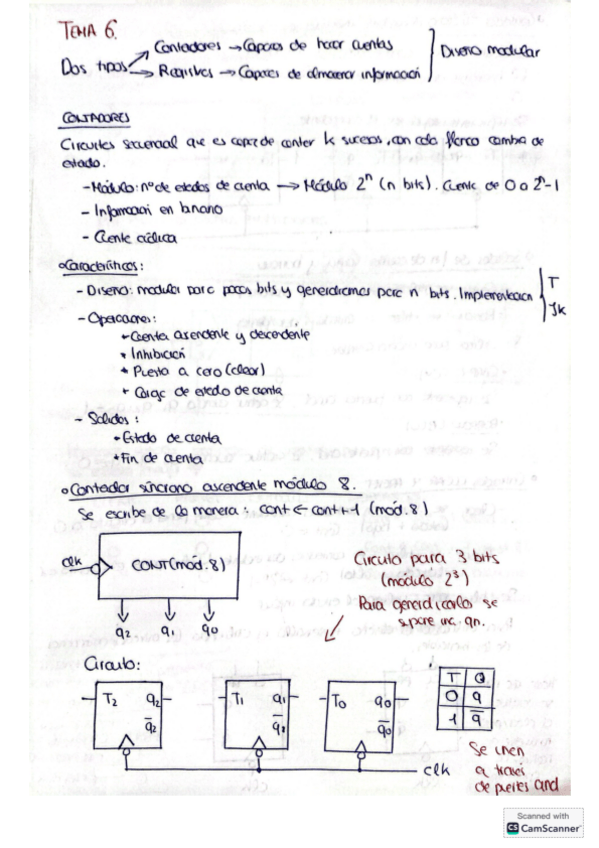 TEMA 6.
Dos tipos
Contadores → Capaces de hacer cuentas
Registros → Capaces de almacenar información
Diseño modular
CONTADORES
Circuitos secuencial que es capaz de contar k sucesos, con cada flanco cambia de
estado.
- Módulo: nº de estados de cuenta → Módulo 2^n (n bits). Cuenta de 0 a 2^n-1
- Información en binario
- Cuenta cíclica
Características:
- Diseño: modular para pocos bits y generalizamos para n bits. Implementación
T
JK
- Operaciones:
• Cuenta ascendente y descendente
• Inhibición
• Puesta a cero (clear)
• Carga de estado de cuenta
- Salidas:
• Estado de cuenta
• Fin de cuenta
• Contador síncrono ascendente módulo 8.
Se escribe de la manera: cont ← cont+1 (mód. 8)
clk
CONT(mod. 8)
q2 q1 q0
Circuito para 3 bits
(módulo 2³)
Para generalizarlo se
Circuito:
T2 q2
q̅2
T1 q1
q̅1
T0 q0
q̅0
clk
T Q
0 q
1 q̅
Se unen
a través
de puertas and
Scanned with
CS CamScanner